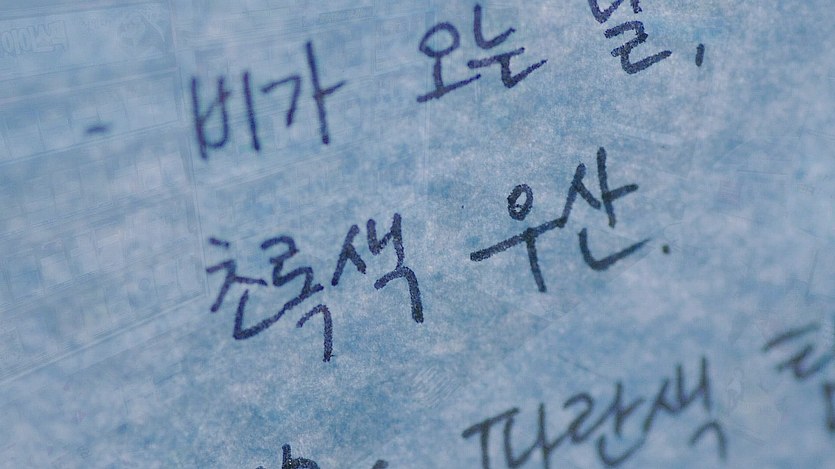 - 비가 오는 날,
초록색 우산.
파란색